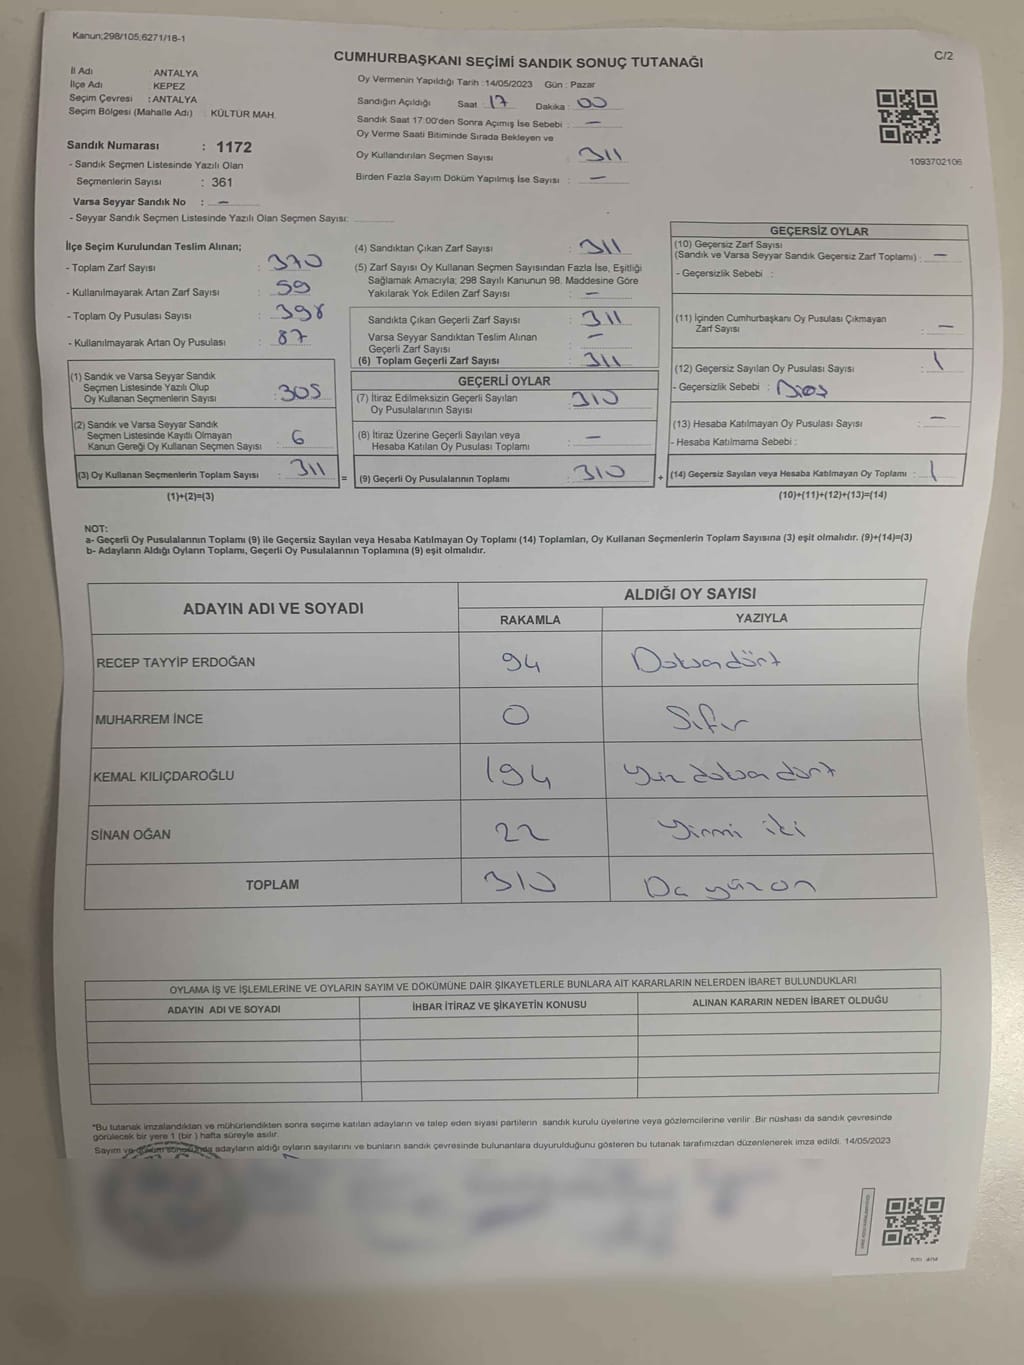 Kanun;298/105,6271/18-1
CUMHURBAŞKANI SEÇİMİ SANDIK SONUÇ TUTANAĞI
C/2
İl Adı ANTALYA
İlçe Adı : KEPEZ
Seçim Çevresi : ANTALYA
Seçim Bölgesi (Mahalle Adı) : KÜLTÜR MAH.
Sandık Numarası : 1172
- Sandık Seçmen Listesinde Yazılı Olan
Seçmenlerin Sayısı : 361
Varsa Seyyar Sandık No : —
- Seyyar Sandık Seçmen Listesinde Yazılı Olan Seçmen Sayısı:
Oy Vermenin Yapıldığı Tarih : 14/05/2023 Gün : Pazar
Sandığın Açıldığı Saat 17 Dakika : 00
Sandık Saat 17:00'den Sonra Açımış İse Sebebi : —
Oy Verme Saati Bitiminde Sırada Bekleyen ve
Oy Kullandırılan Seçmen Sayısı 311
Birden Fazla Sayım Döküm Yapılmış İse Sayısı : —
1093702106
İlçe Seçim Kurulundan Teslim Alınan;
- Toplam Zarf Sayısı : 370
- Kullanılmayarak Artan Zarf Sayısı : 59
- Toplam Oy Pusulası Sayısı : 398
- Kullanılmayarak Artan Oy Pusulası : 87
(1) Sandık ve Varsa Seyyar Sandık
Seçmen Listesinde Yazılı Olup
Oy Kullanan Seçmenlerin Sayısı : 305
(2) Sandık ve Varsa Seyyar Sandık
Seçmen Listesinde Kayıtlı Olmayan
Kanun Gereği Oy Kullanan Seçmen Sayısı : 6
(3) Oy Kullanan Seçmenlerin Toplam Sayısı : 311 =
(1)+(2)=(3)
(4) Sandıktan Çıkan Zarf Sayısı : 311
(5) Zarf Sayısı Oy Kullanan Seçmen Sayısından Fazla İse, Eşitliği
Sağlamak Amacıyla; 298 Sayılı Kanunun 98. Maddesine Göre
Yakılarak Yok Edilen Zarf Sayısı : —
Sandıkta Çıkan Geçerli Zarf Sayısı : 311
Varsa Seyyar Sandıktan Teslim Alınan
Geçerli Zarf Sayısı : —
(6) Toplam Geçerli Zarf Sayısı : 311
GEÇERLİ OYLAR
(7) İtiraz Edilmeksizin Geçerli Sayılan
Oy Pusulalarının Sayısı : 310
(8) İtiraz Üzerine Geçerli Sayılan veya
Hesaba Katılan Oy Pusulası Toplamı : —
(9) Geçerli Oy Pusulalarının Toplamı : 310 +
GEÇERSİZ OYLAR
(10) Geçersiz Zarf Sayısı
(Sandık ve Varsa Seyyar Sandık Geçersiz Zarf Toplamı) : —
- Geçersizlik Sebebi :
(11) İçinden Cumhurbaşkanı Oy Pusulası Çıkmayan
Zarf Sayısı : —
(12) Geçersiz Sayılan Oy Pusulası Sayısı : 1
- Geçersizlik Sebebi :
(13) Hesaba Katılmayan Oy Pusulası Sayısı : —
- Hesaba Katılmama Sebebi :
(14) Geçersiz Sayılan veya Hesaba Katılmayan Oy Toplamı : 1
(10)+(11)+(12)+(13)=(14)
NOT:
a- Geçerli Oy Pusulalarının Toplamı (9) ile Geçersiz Sayılan veya Hesaba Katılmayan Oy Toplamı (14) Toplamları, Oy Kullanan Seçmenlerin Toplam Sayısına (3) eşit olmalıdır. (9)+(14)=(3)
b- Adayların Aldığı Oyların Toplamı, Geçerli Oy Pusulalarının Toplamına (9) eşit olmalıdır.
ADAYIN ADI VE SOYADI ALDIĞI OY SAYISI
RAKAMLA YAZIYLA
RECEP TAYYİP ERDOĞAN 94 Doksandört
MUHARREM İNCE 0 Sıfır
KEMAL KILIÇDAROĞLU 194 Yüz doksan dört
SİNAN OĞAN 22 Yirmi iki
TOPLAM 310 Üç yüz on
OYLAMA İŞ VE İŞLEMLERİNE VE OYLARIN SAYIM VE DÖKÜMÜNE DAİR ŞİKAYETLERLE BUNLARA AİT KARARLARIN NELERDEN İBARET BULUNDUKLARI
ADAYIN ADI VE SOYADI İHBAR İTİRAZ VE ŞİKAYETİN KONUSU ALINAN KARARIN NEDEN İBARET OLDUĞU
*Bu tutanak imzalandıktan ve mühürlendikten sonra seçime katılan adayların ve talep eden siyasi partilerin sandık kurulu üyelerine veya gözlemcilerine verilir. Bir nüshası da sandık çevresinde
görülecek bir yere 1 (bir) hafta süreyle asılır.
Sayım ve döküm sonucunda adayların aldığı oyların sayılarını ve bunların sandık çevresinde bulunanlara duyurulduğunu gösteren bu tutanak tarafımızdan düzenlenerek imza edildi. 14/05/2023